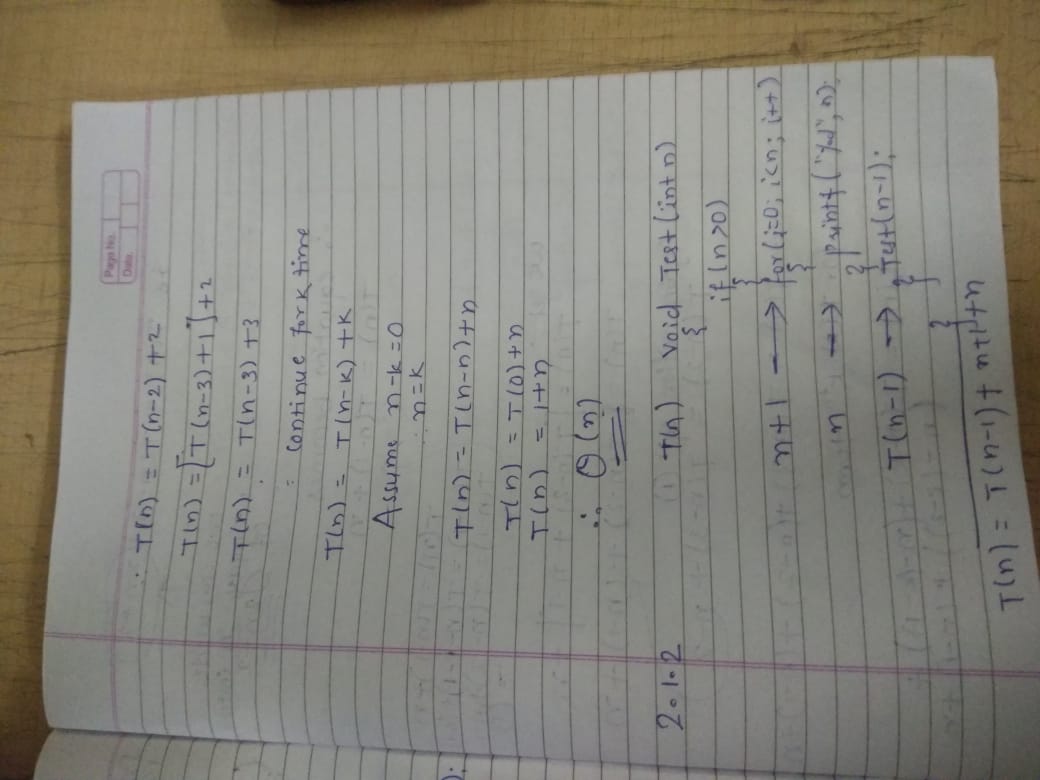 Page No.
Date
∴ T(n) = T(n-2) +2
T(n) = [T(n-3)+1]+2
T(n) = T(n-3) +3
: continue for k time
T(n) = T(n-k) +k
Assume n-k=0
∴ n=k
T(n) = T(n-n)+n
T(n) = T(0)+n
T(n) = 1+n
∴ Θ(n)
2.1.2 T(n) Void Test(int n)
{
if(n>0)
{
n+1 → for(i=0; i<n; i++)
{
n → printf("%d", n);
}
T(n-1) → Test(n-1);
}
}
T(n) = T(n-1)+ n+1+n